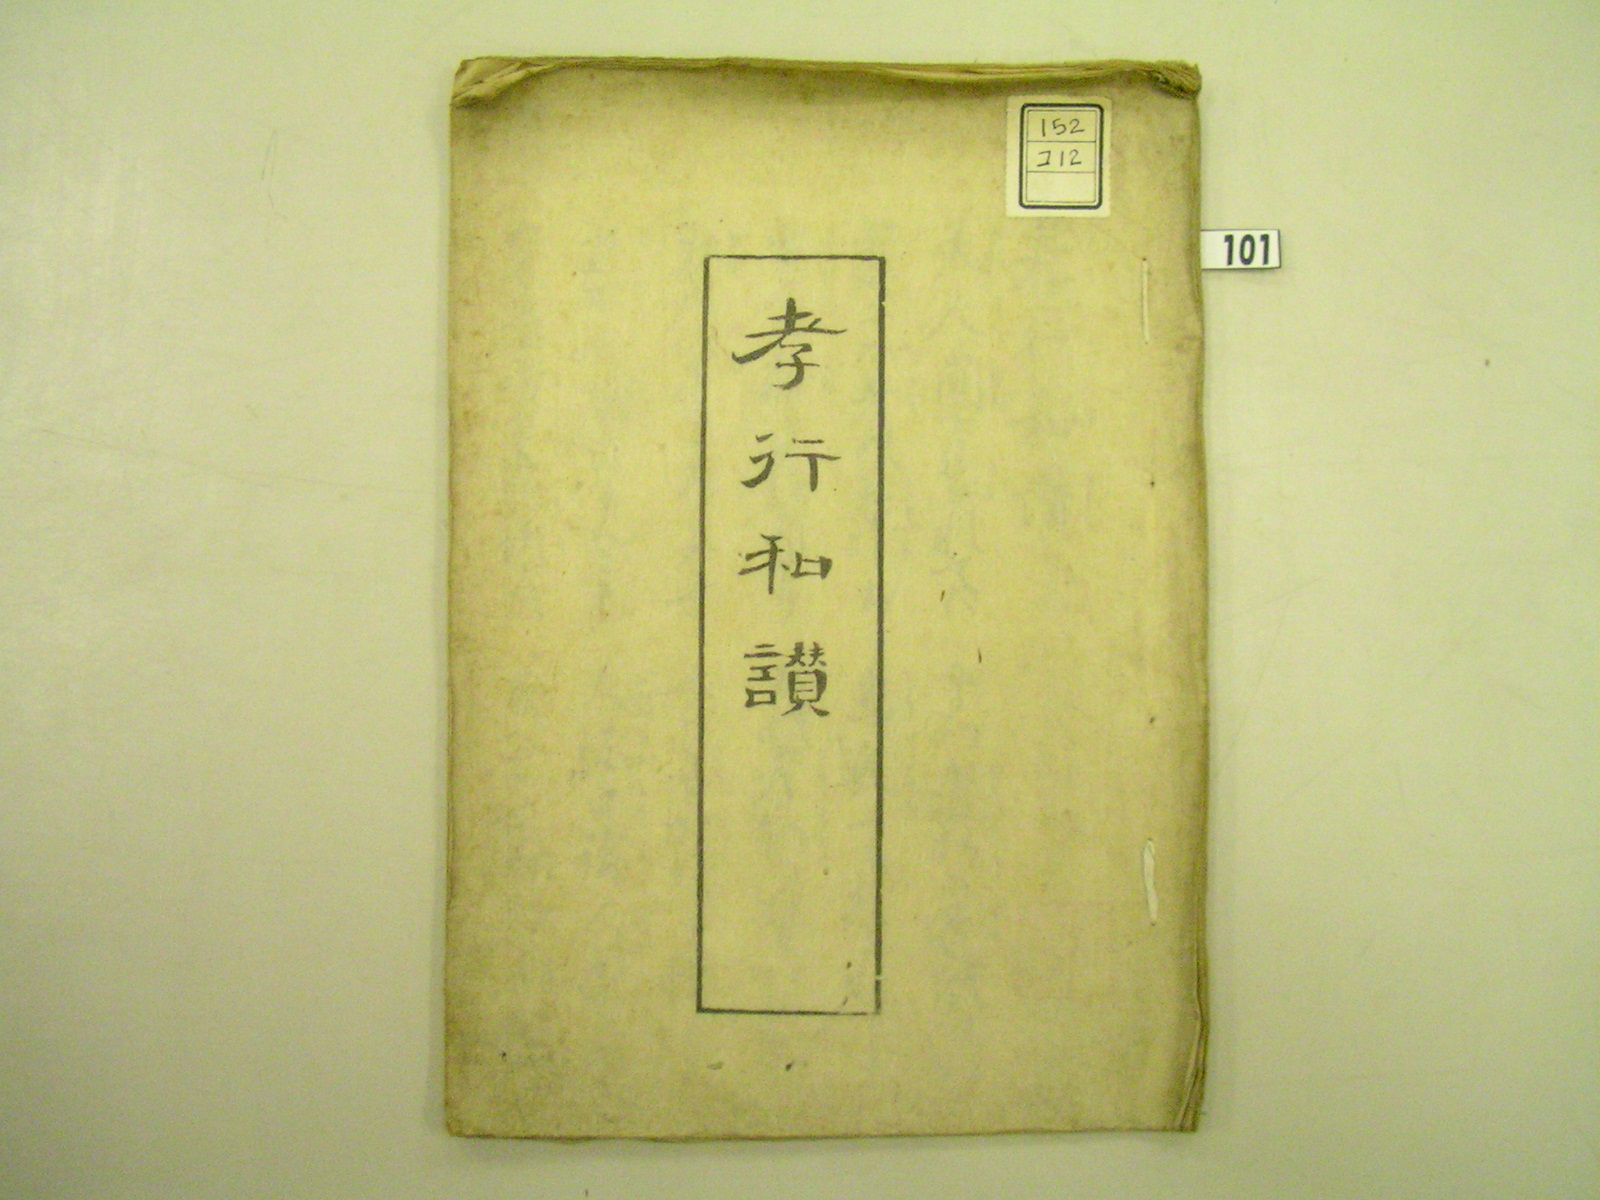 孝行和讃
152
コ12
101